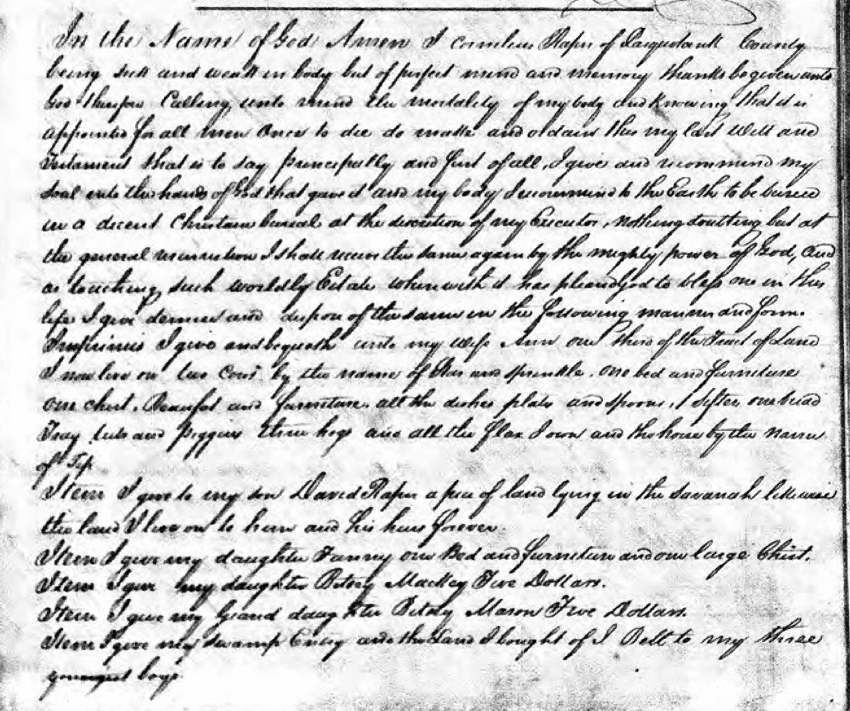 In the Name of God Amen I Cornelius Raper of Pasquotank County
being sick and weak in body but of perfect mind and memory thanks be given unto
God therefore Calling unto mind the mortality of my body and knowing that it is
appointed for all men Once to die do make and ordain this my last Will and
Testament that is to say principally and first of all, I give and recommend my
Soul into the hands of God that gave it and my body I recommend to the Earth to be buried
in a decent Christian burial at the discretion of my Executor, nothing doubting but at
the general resurrection I shall receive the same again by the mighty power of God, and
as touching such worldly Estate wherewith it has pleased god to bless me in this
life I give demise and dispose of the same in the following manner and form.
Imprimis I give and bequeath unto my Wife Ann one third of the Tract of Land
I now live on two Cows by the name of Star and Sprinkle. one bed and furniture
one chest, Beaufat and furniture all the dishes plates and spoons, 1 sifter one bread
Tray tubs and Piggins three hogs and all the flax I own and the horse by the name
of Tip
Item I give to my son David Raper a piece of land lying in the Savanah likewise
the land I live on to him and his heirs forever.
Item I give my daughter Fanny one Bed and furniture and one large Chist.
Item I give my daughter Betsey Mackey Five Dollars.
Item I give my Grand daughter Betsey Mason Five Dollars.
Item I give my Swamp Entry and the Land I bought of I Bell to my three
youngest boys.